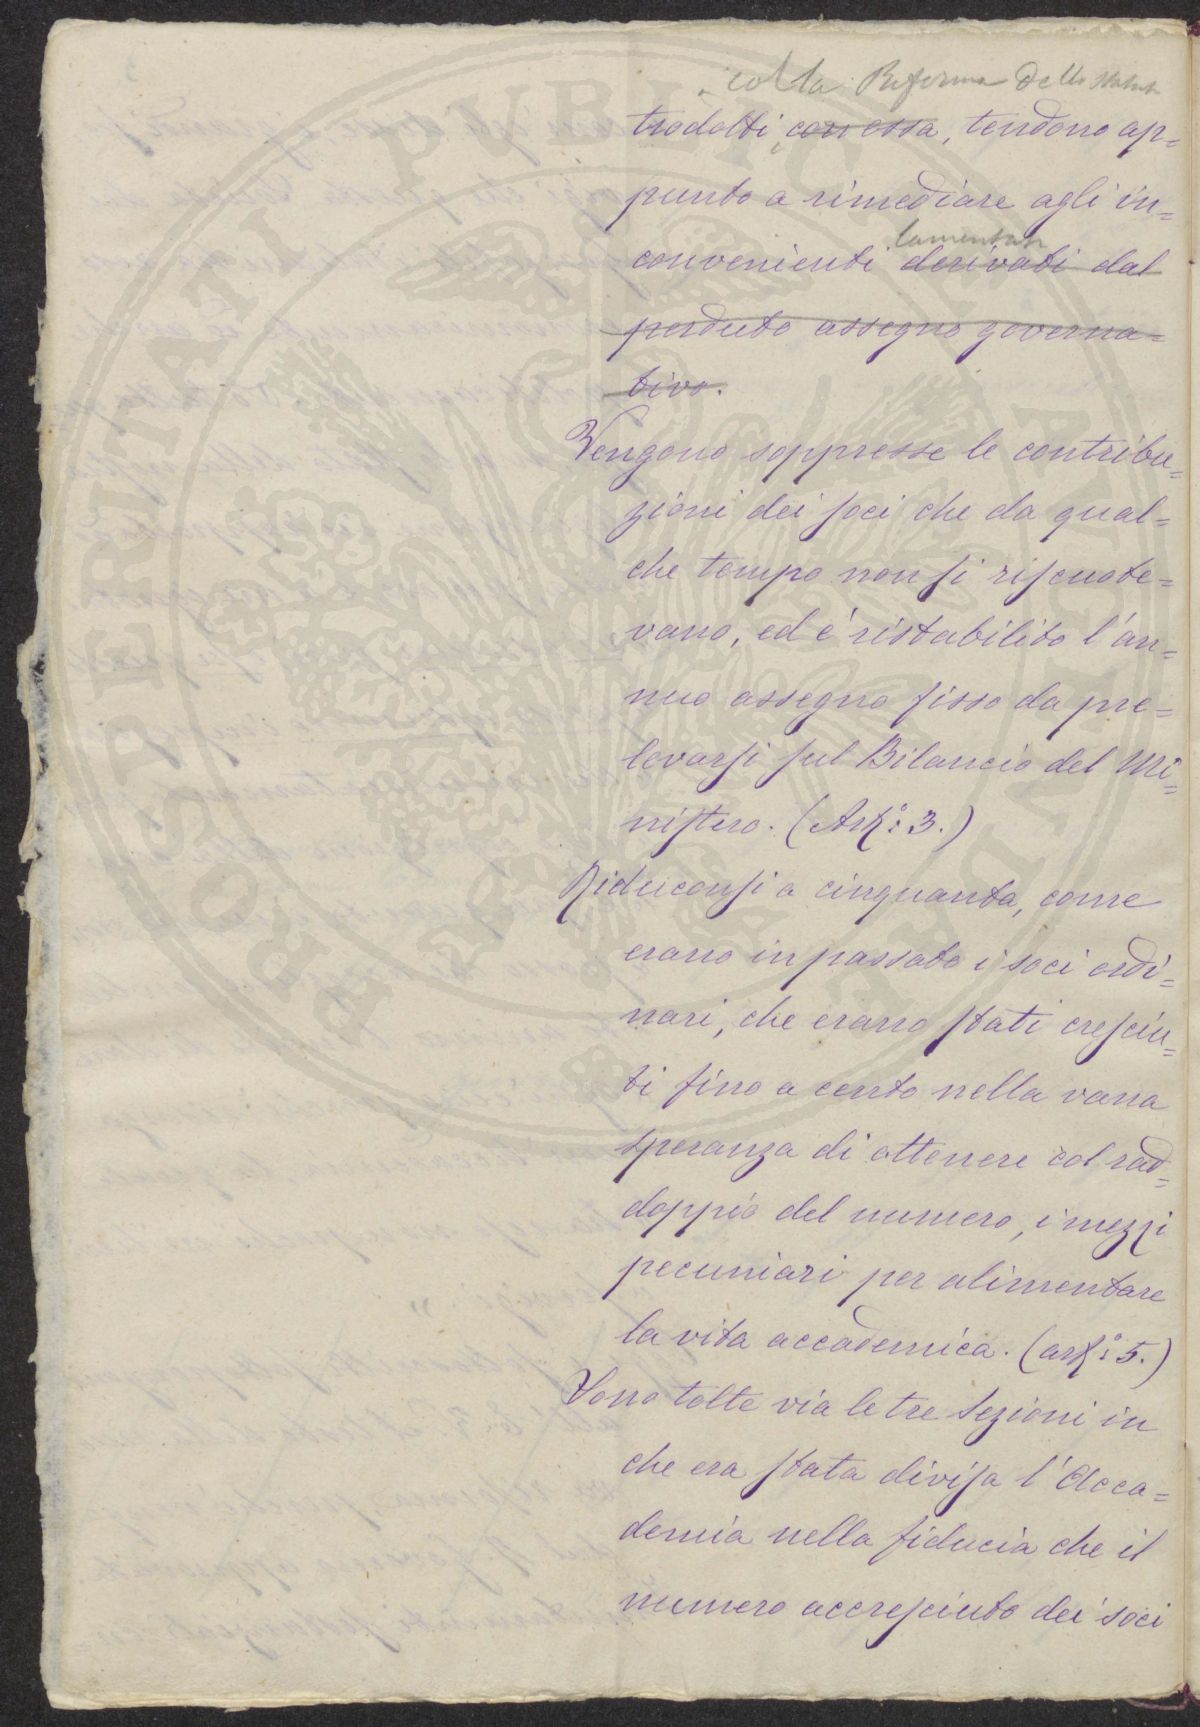 colla Riforma dello Statuto
trodotti, con essa, tendono ap=
punto a rimediare agli in=
lamentati
convenienti derivati dal
perduto assegno governa=
tivo.
Vengono soppresse le contribu=
zioni dei soci che da qual=
che tempo non si riscuote=
vano, ed è ristabilito l'an=
nuo assegno fisso da pre=
levarsi sul Bilancio del Mi=
nistero. (Art.° 3.)
Riduconsi a cinquanta, come
erano in passato i soci ordi=
nari, che erano stati cresciu=
ti fino a cento nella vana
speranza di ottenere col rad=
doppio del numero, i mezzi
pecuniari per alimentare
la vita accademica. (art.° 5.)
Sono tolte via le tre Sezioni in
che era stata divisa l'Acca=
demia nella fiducia che il
numero accresciuto dei soci
PROSPERITATI PVBLICAE AVGENDAE